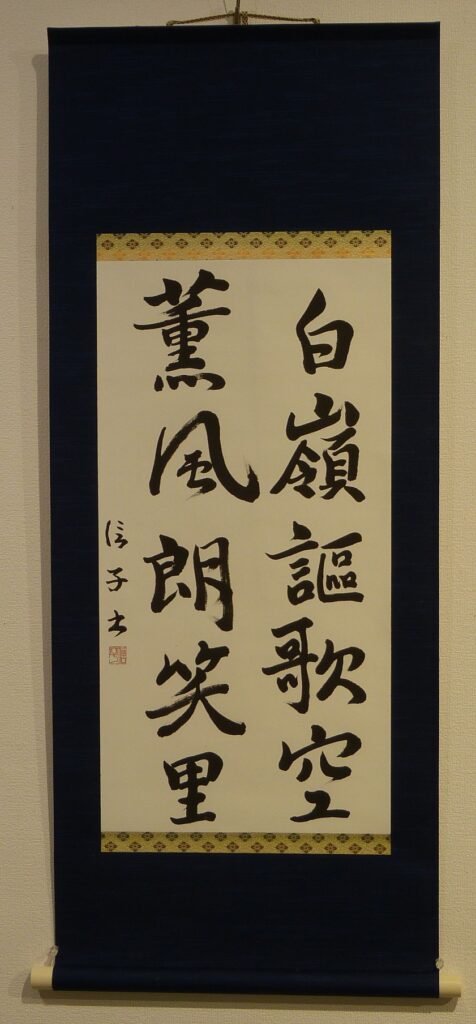 白嶺謳歌空
薫風朗笑里
信子书